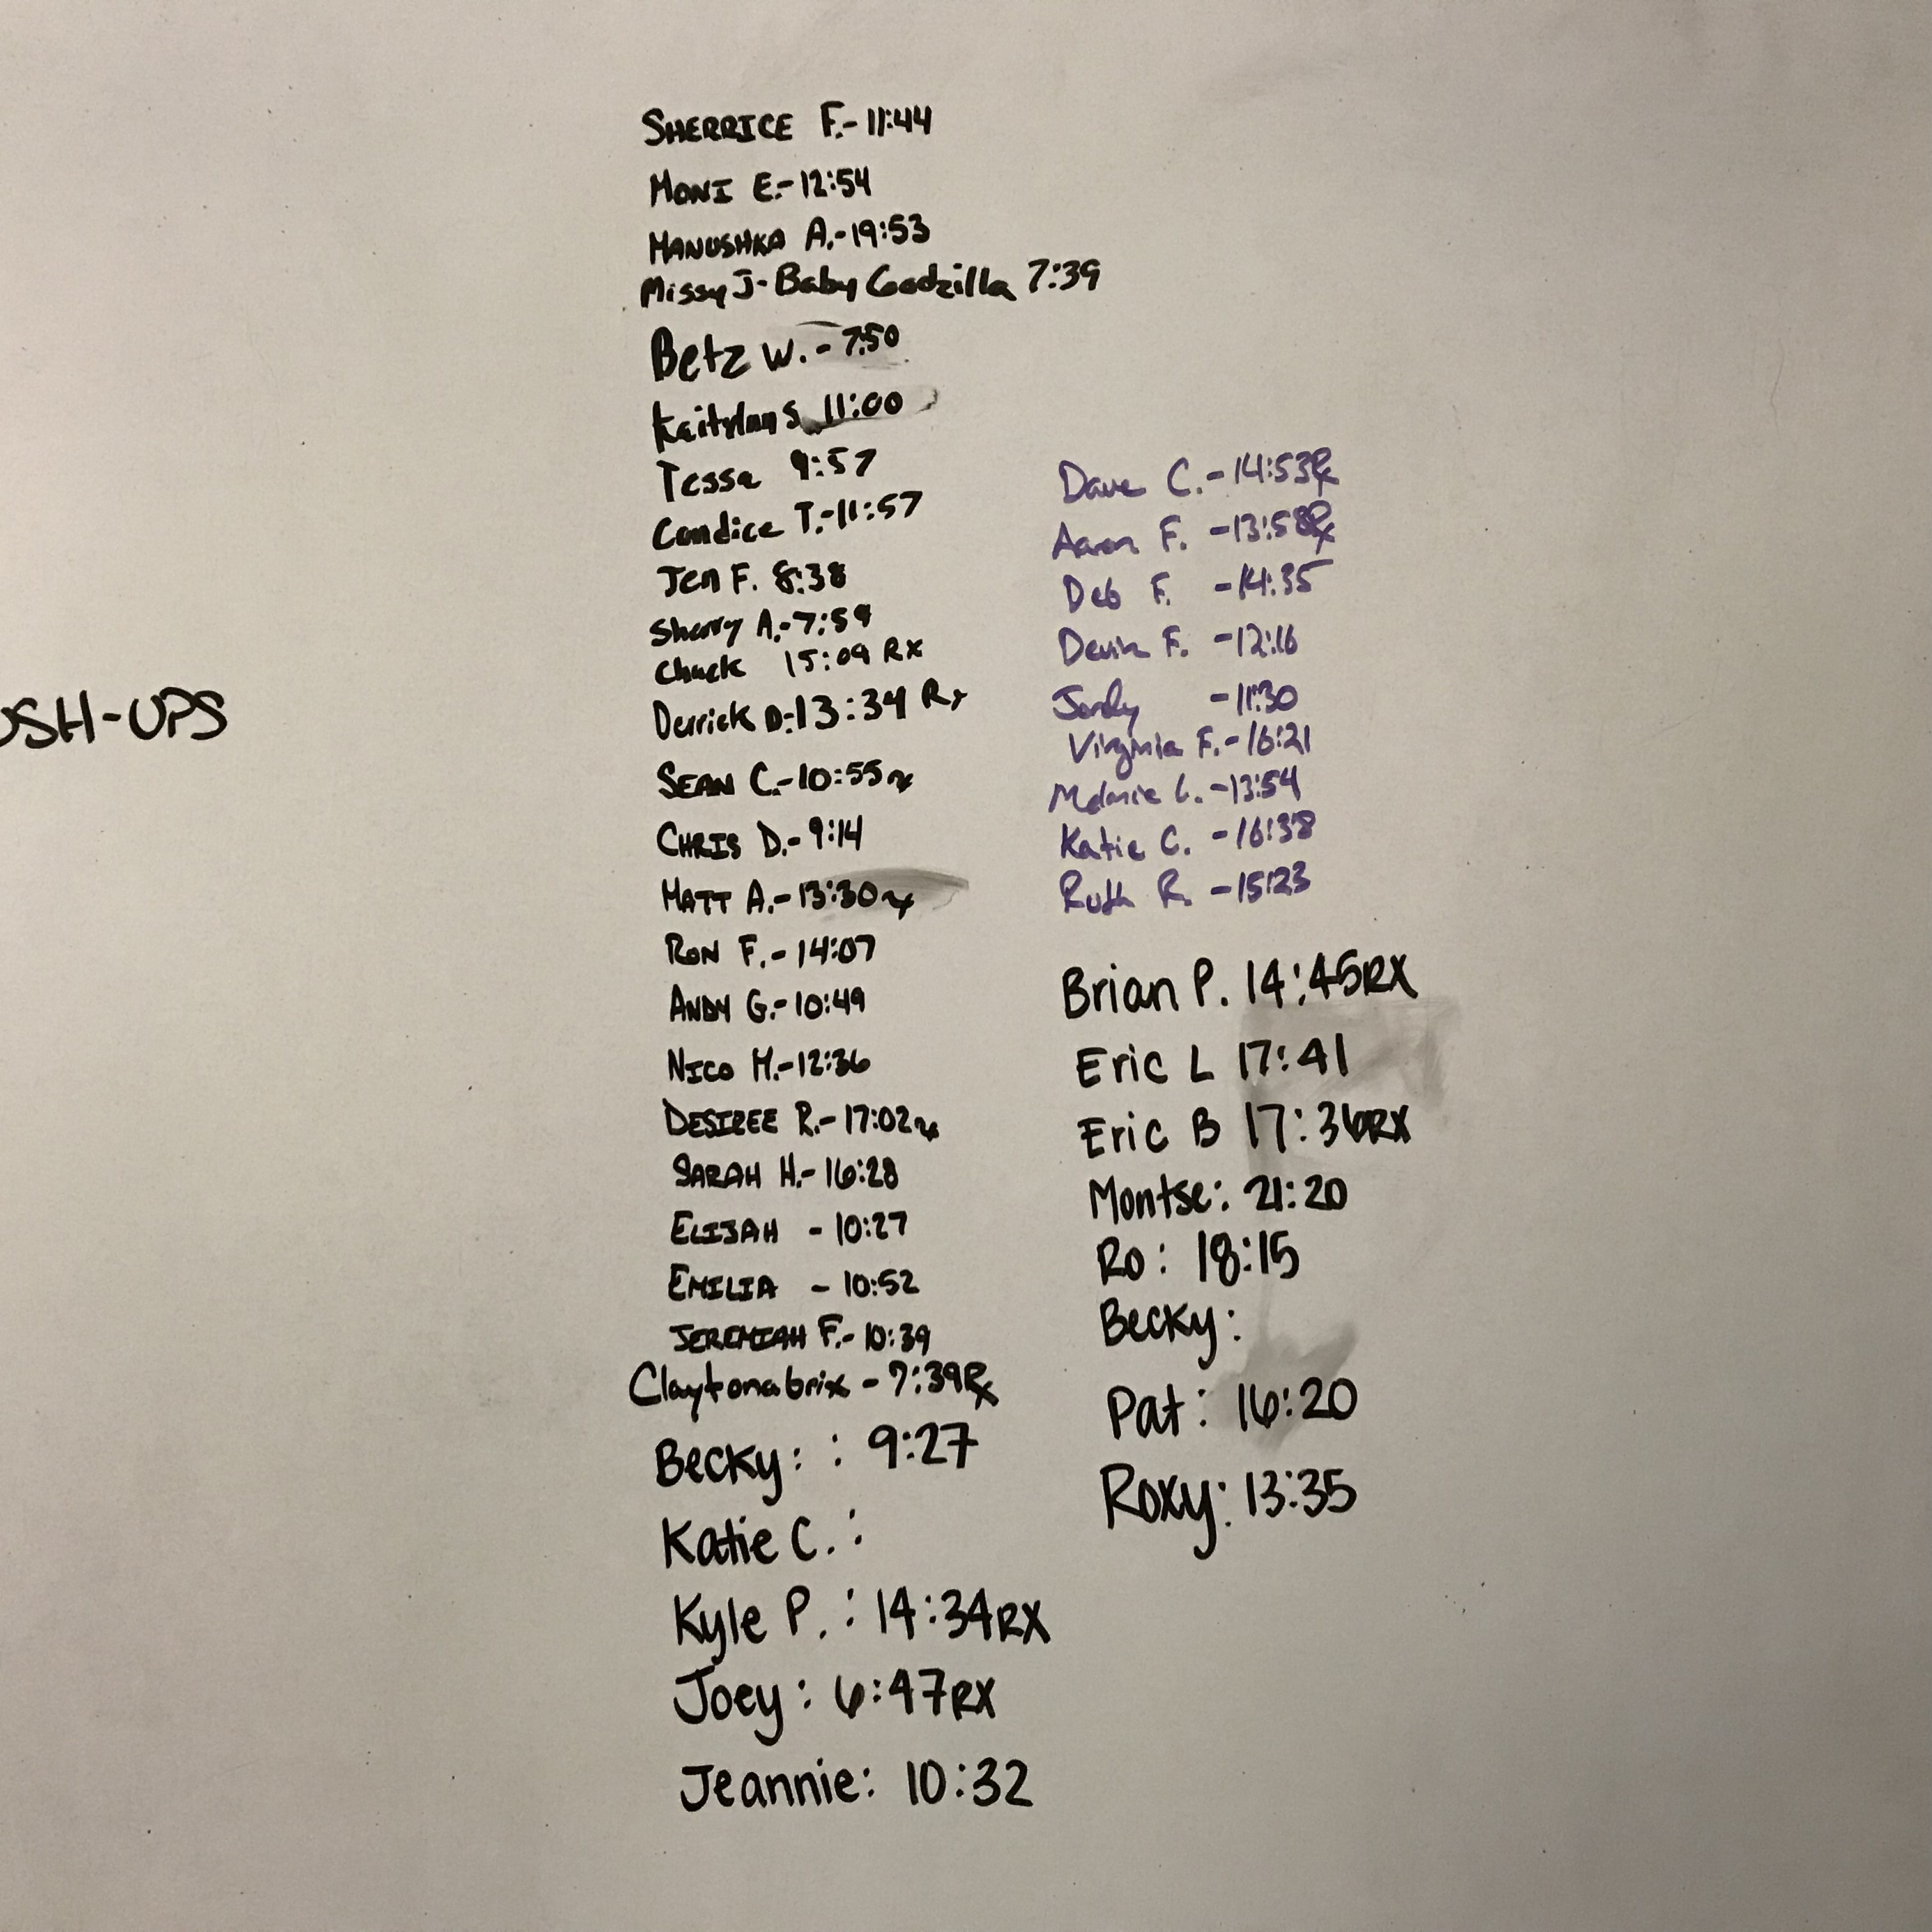 USH-UPS
SHERRICE F.- 11:44
MONI E.- 12:54
MANUSHKA A.- 19:53
Missy J- Baby Godzilla 7:39
Betz W. - 7:50
Kaitlynn S 11:00
Tessa 9:57
Candice T.- 11:57
Jen F. 8:38
Sherry A.- 7:59
Chuck 15:09 Rx
Derrick D.- 13:34 Rx
SEAN C.- 10:55 rx
CHRIS D.- 9:14
MATT A.- 13:30 rx
RON F.- 14:07
ANDY G.- 10:49
NICO M.- 12:36
DESIREE R.- 17:02 rx
SARAH H.- 16:28
ELIJAH - 10:27
EMILIA - 10:52
JEREMIAH F.- 10:39
Claytonabrix - 7:39 Rx
Becky: : 9:27
Katie C. :
Kyle P. : 14:34 RX
Joey : 6:47 RX
Jeannie: 10:32
Dave C. - 14:53 Rx
Aaron F. - 13:58 Rx
Deb F. - 14:35
Devin F. - 12:16
Jordy - 11:30
Virginia F. - 16:21
Melanie - 13:54
Katie C. - 16:38
Ruth R. - 15:23
Brian P. 14:45 RX
Eric L 17:41
Eric B 17:36 RX
Montse: 21:20
Ro : 18:15
Becky :
Pat : 16:20
Roxy: 13:35